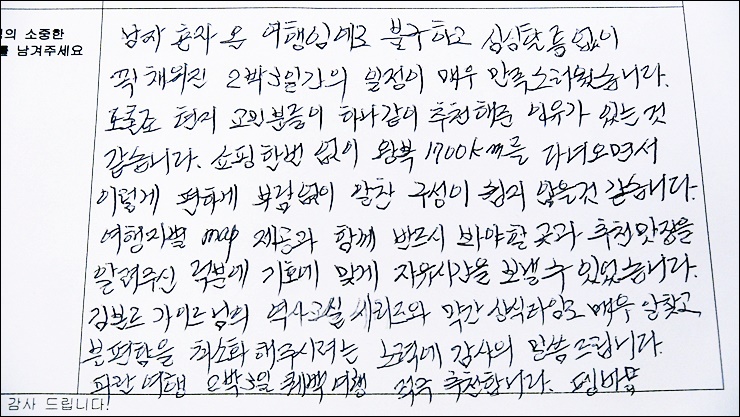 의 소중한
를 남겨주세요
남자 혼자 온 여행임에도 불구하고 심심할 틈 없이
꽉 채워진 2박3일간의 일정이 매우 만족스러웠습니다.
토론토 현지 교민분들이 하나같이 추천해준 이유가 있는 것
같습니다. 쇼핑 한번 없이 왕복 1700km를 다녀오면서
이렇게 편하게 부담없이 알찬 구성이 쉽지 않을것 같습니다.
여행지별 map 제공과 함께 반드시 봐야할 곳과 추천맛집을
알려주신 덕분에 기호에 맞게 자유시간을 보낼 수 있었습니다.
가이드님의 역사교실 시리즈와 막간 상식타임도 매우 알찼고
불편함을 최소화 해주시려는 노력에 감사의 말씀 드립니다.
파란여행 2박3일 퀘백여행 적극 추천합니다.
감사 드립니다!